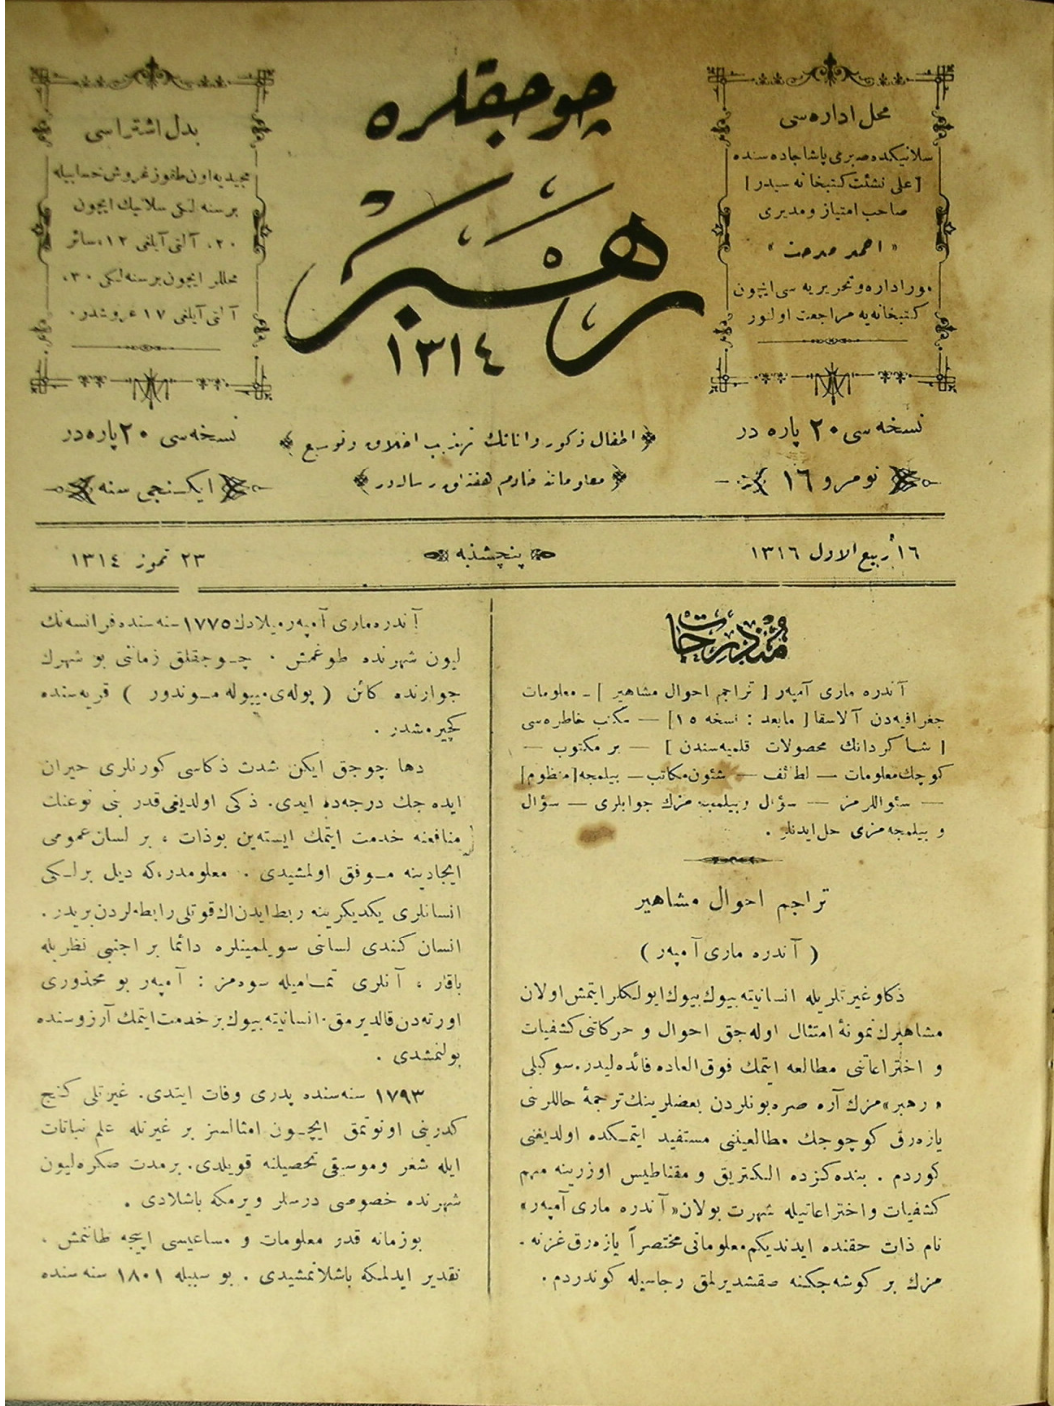 چوجقلره
رهبر
١٣١٤
محل اداره سی
سلانيكده صبری پاشا جاده سنده
صاحب امتیاز و مدیری
« احمد مدحت »
امور اداره و تحریریه سی ایچون
کتبخانه یه مراجعت اولنور
بدل اشتراسی
مجیدیه اون طقوز غروش حسابیله
بر سنه لکی سلانیك ایچون
٢٠، آلتی آیلغی ١٢، سائر
محللر ایچون بر سنه لکی ٣٠،
آلتی آیلغی ١٧ غروشدر.
نسخه سی ٢٠ پاره در
نومرو ١٦
اطفال ذكور و اناثك تهذیب اخلاق و توسیع
معلوماتنه خادم هفته لق رساله در
نسخه سی ٢٠ پاره در
ایکنجی سنه
١٦ ربیع الاول ١٣١٦
پنچشنبه
٢٣ تموز ١٣١٤
مندرجات
آندره ماری آمپەر [ تراجم احوال مشاهیر ] ـ معلومات
جغرافیه دن آلاسقا [ مابعد : نسخه ١٥ ] — مکتب خاطره سی
[ شاکردانك محصولات قلمیه سندن ] — بر مکتوب —
کوچك معلومات — لطائف — شئون مکاتب — بیلمجه [منظوم]
— سئواللرمز — سؤال و بیلمجه مزك جوابلری — سؤال
و بیلمجه مزی حل ایدنلر .
تراجم احوال مشاهیر
( آندره ماری آمپەر )
ذکا و غیرتلریله انسانیته بیوك بیوك ایولکلر ایتمش اولان
مشاهیرك نمونهٔ امتثال اوله جق احوال و حرکاتنی کشفیات
و اختراعاتنی مطالعه ایتمك فوق العاده فائده لیدر. سوکیلی
« رهبر » مزك آره صره بونلردن بعضلرینك ترجمهٔ حاللرینی
یازه رق کوچوجك مطالعیننی مستفید ایتمکده اولدیغنی
کوردم . بنده کزده الکتریق و مقناطیس اوزرینه مهم
کشفیات و اختراعاتیله شهرت بولان « آندره ماری آمپەر »
نام ذات حقنده ایدندیکم معلوماتی مختصراً یازه رق غزته .
مزك بر کوشه جکنه صقشدیرلمق رجاسیله کوندردم .
آندره ماری آمپەر میلادك ١٧٧٥ سنه سنده فرانسه نك
لیون شهرنده طوغمش . چوجقلق زمانی بو شهرك
جوارنده کائن ( پوله ی میپوله موندور ) قریه سنده
کچیرمشدر .
دها چوجق ایکن شدت ذکاسی کورنلری حیران
ایده جك درجه ده ایدی. ذکی اولدیغی قدر بنی نوعنك
منافعنه خدمت ایتمك ایسته ین بوذات ، بر لسان عمومی
ایجادینه موفق اولمشیدی . معلومدر، که دیل برلکی
انسانلری یکدیکرینه ربط ایدن اك قوتلی رابطه لردن بریدر .
انسان کندی لسانی سویلمینلره دائما بر اجنبی نظریله
باقار ، آنلری تمامیله سوه مز : آمپەر بو محذوری
اورته دن قالدیرمق، انسانیته بیوك بر خدمت ایتمك آرزوسنده
بولنمشدی .
١٧٩٣ سنه سنده پدری وفات ایتدی. غیرتلی کنج
کدرینی اونوتمق ایچون امثالسز بر غیرتله علم نباتات
ایله شعر وموسیقی تحصیلنه قویلدی. بر مدت صکره لیون
شهرنده خصوصی درسلر ویرمکه باشلادی .
بوزمانه قدر معلومات و مساعیسی اییجه طانتمش ،
تقدیر ایدلمکه باشلانمشیدی . بو سببله ١٨٠١ سنه سنده